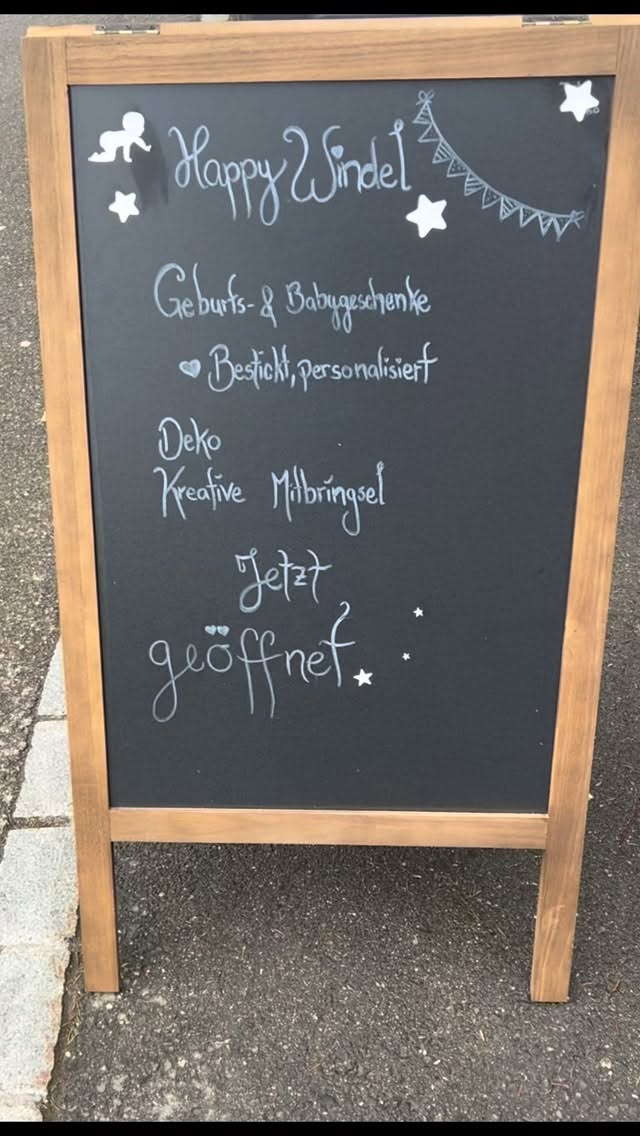 Happy Windel
Geburts- & Babygeschenke
Bestickt, personalisiert
Deko
Kreative Mitbringsel
Jetzt
geöffnet